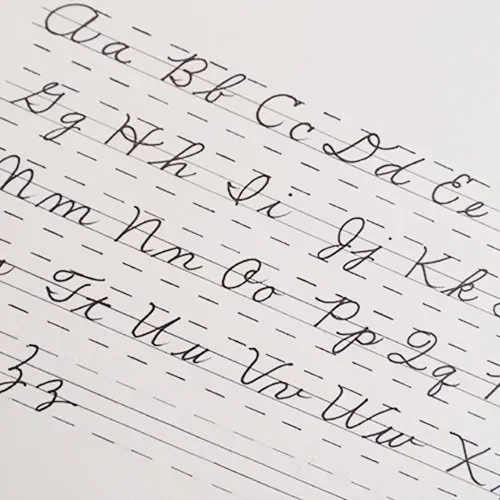 Aa Bb Cc Dd Ee
Gg Hh Ii Jj Kk
Mm Nn Oo Pp Qq
Tt Uu Vv Ww X
Zz